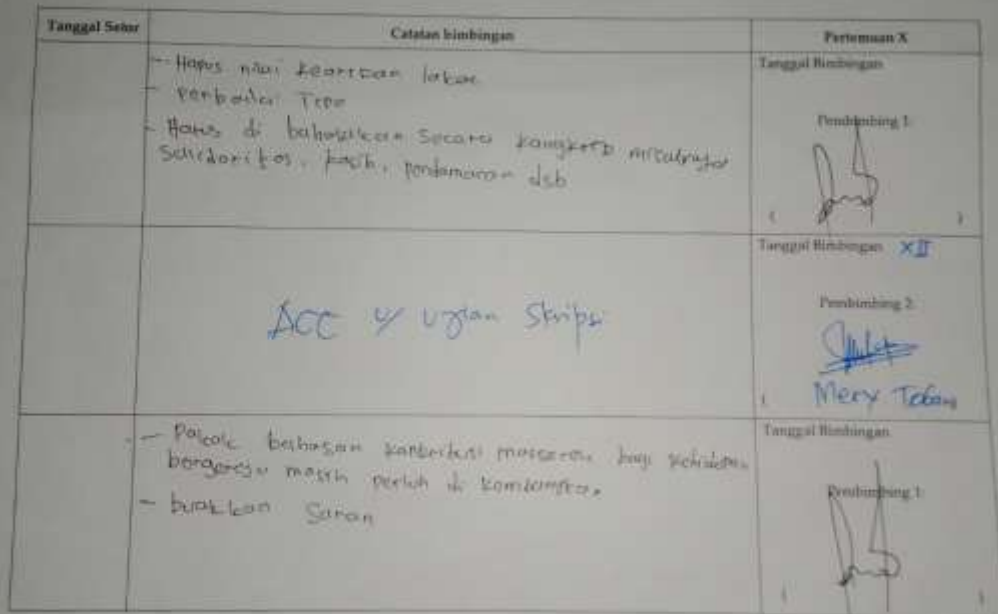 Tanggal Setor
Catatan bimbingan
Pertemuan X
- Hapus nilai kearifan lokal
- Perbaiki Typo
- Harus di bahasakan secara kongkrit misalnya
Solidaritas, kasih, perdamaian dsb
Tanggal Bimbingan
Pembimbing 1:
( )
ACC u/ Ujian Skripsi
Tanggal Bimbingan XII
Pembimbing 2:
( Mery Toban
- Pokok bahasan kontribusi bagi
bergereja masih perlu di
- buatkan Saran
Tanggal Bimbingan
Pembimbing 1:
( )